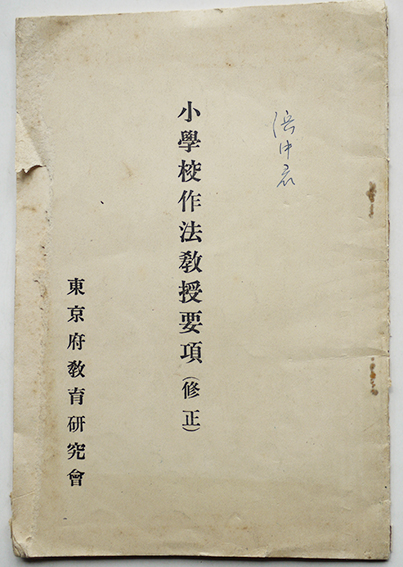 小學校作法教授要項(修正)
東京府教育研究會